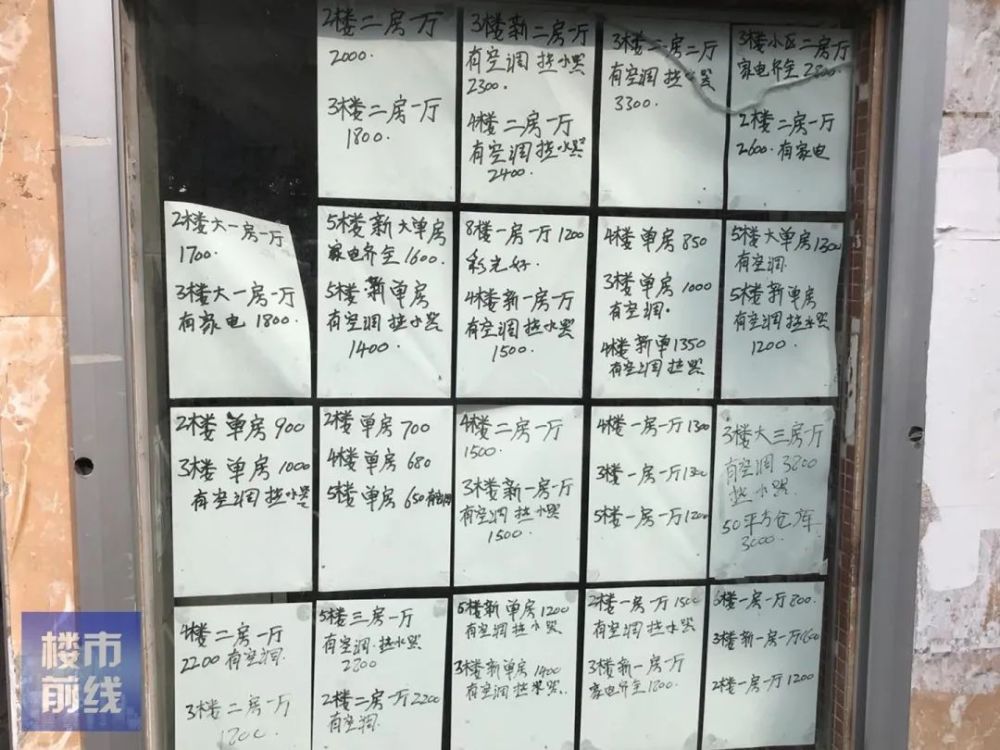 2楼二房一厅
2000.
3楼二房一厅
1800.
3楼新二房一厅
有空调 热水器
2300.
4楼二房一厅
有空调 热水器
2400.
3楼二房二厅
有空调 热水器
3300.
3楼小区二房一厅
家电齐全 2800
2楼二房一厅
2600.有家电
2楼大一房一厅
1700.
3楼大一房一厅
有家电 1800.
5楼新大单房
家电齐全 1600.
5楼新单房
有空调 热水器
1400.
8楼一房一厅 1200
彩光好.
4楼新一房一厅
有空调 热水器
1500.
4楼单房 850
3楼单房 1000
有空调.
4楼新单 1350
有空调 热器
5楼大单房 1300
有空调.
5楼新单房
有空调 热水器
1200.
2楼单房 900
3楼单房 1000
有空调 热水器
2楼单房 700
4楼单房 680
5楼单房 650有空调
4楼二房一厅
1500.
3楼新一房一厅
有空调 热水器
1500.
4楼一房一厅 1300
3楼一房一厅 1300
5楼一房一厅 1200
3楼大三房一厅
有空调 3800
热水器.
50平方仓库
3000.
4楼二房一厅
2200 有空调.
3楼二房一厅
5楼三房一厅
有空调 热水器
2800
2楼二房一厅 2200
有空调.
5楼新单房 1200
有空调 热水器
3楼新单房 1400
有空调 热水器.
2楼一房一厅 1500
有空调 热水器
3楼新一房一厅
家电齐全 1800.
6楼一房一厅 800.
3楼新一房一厅 1600
2楼一房一厅 1200
楼市
前线